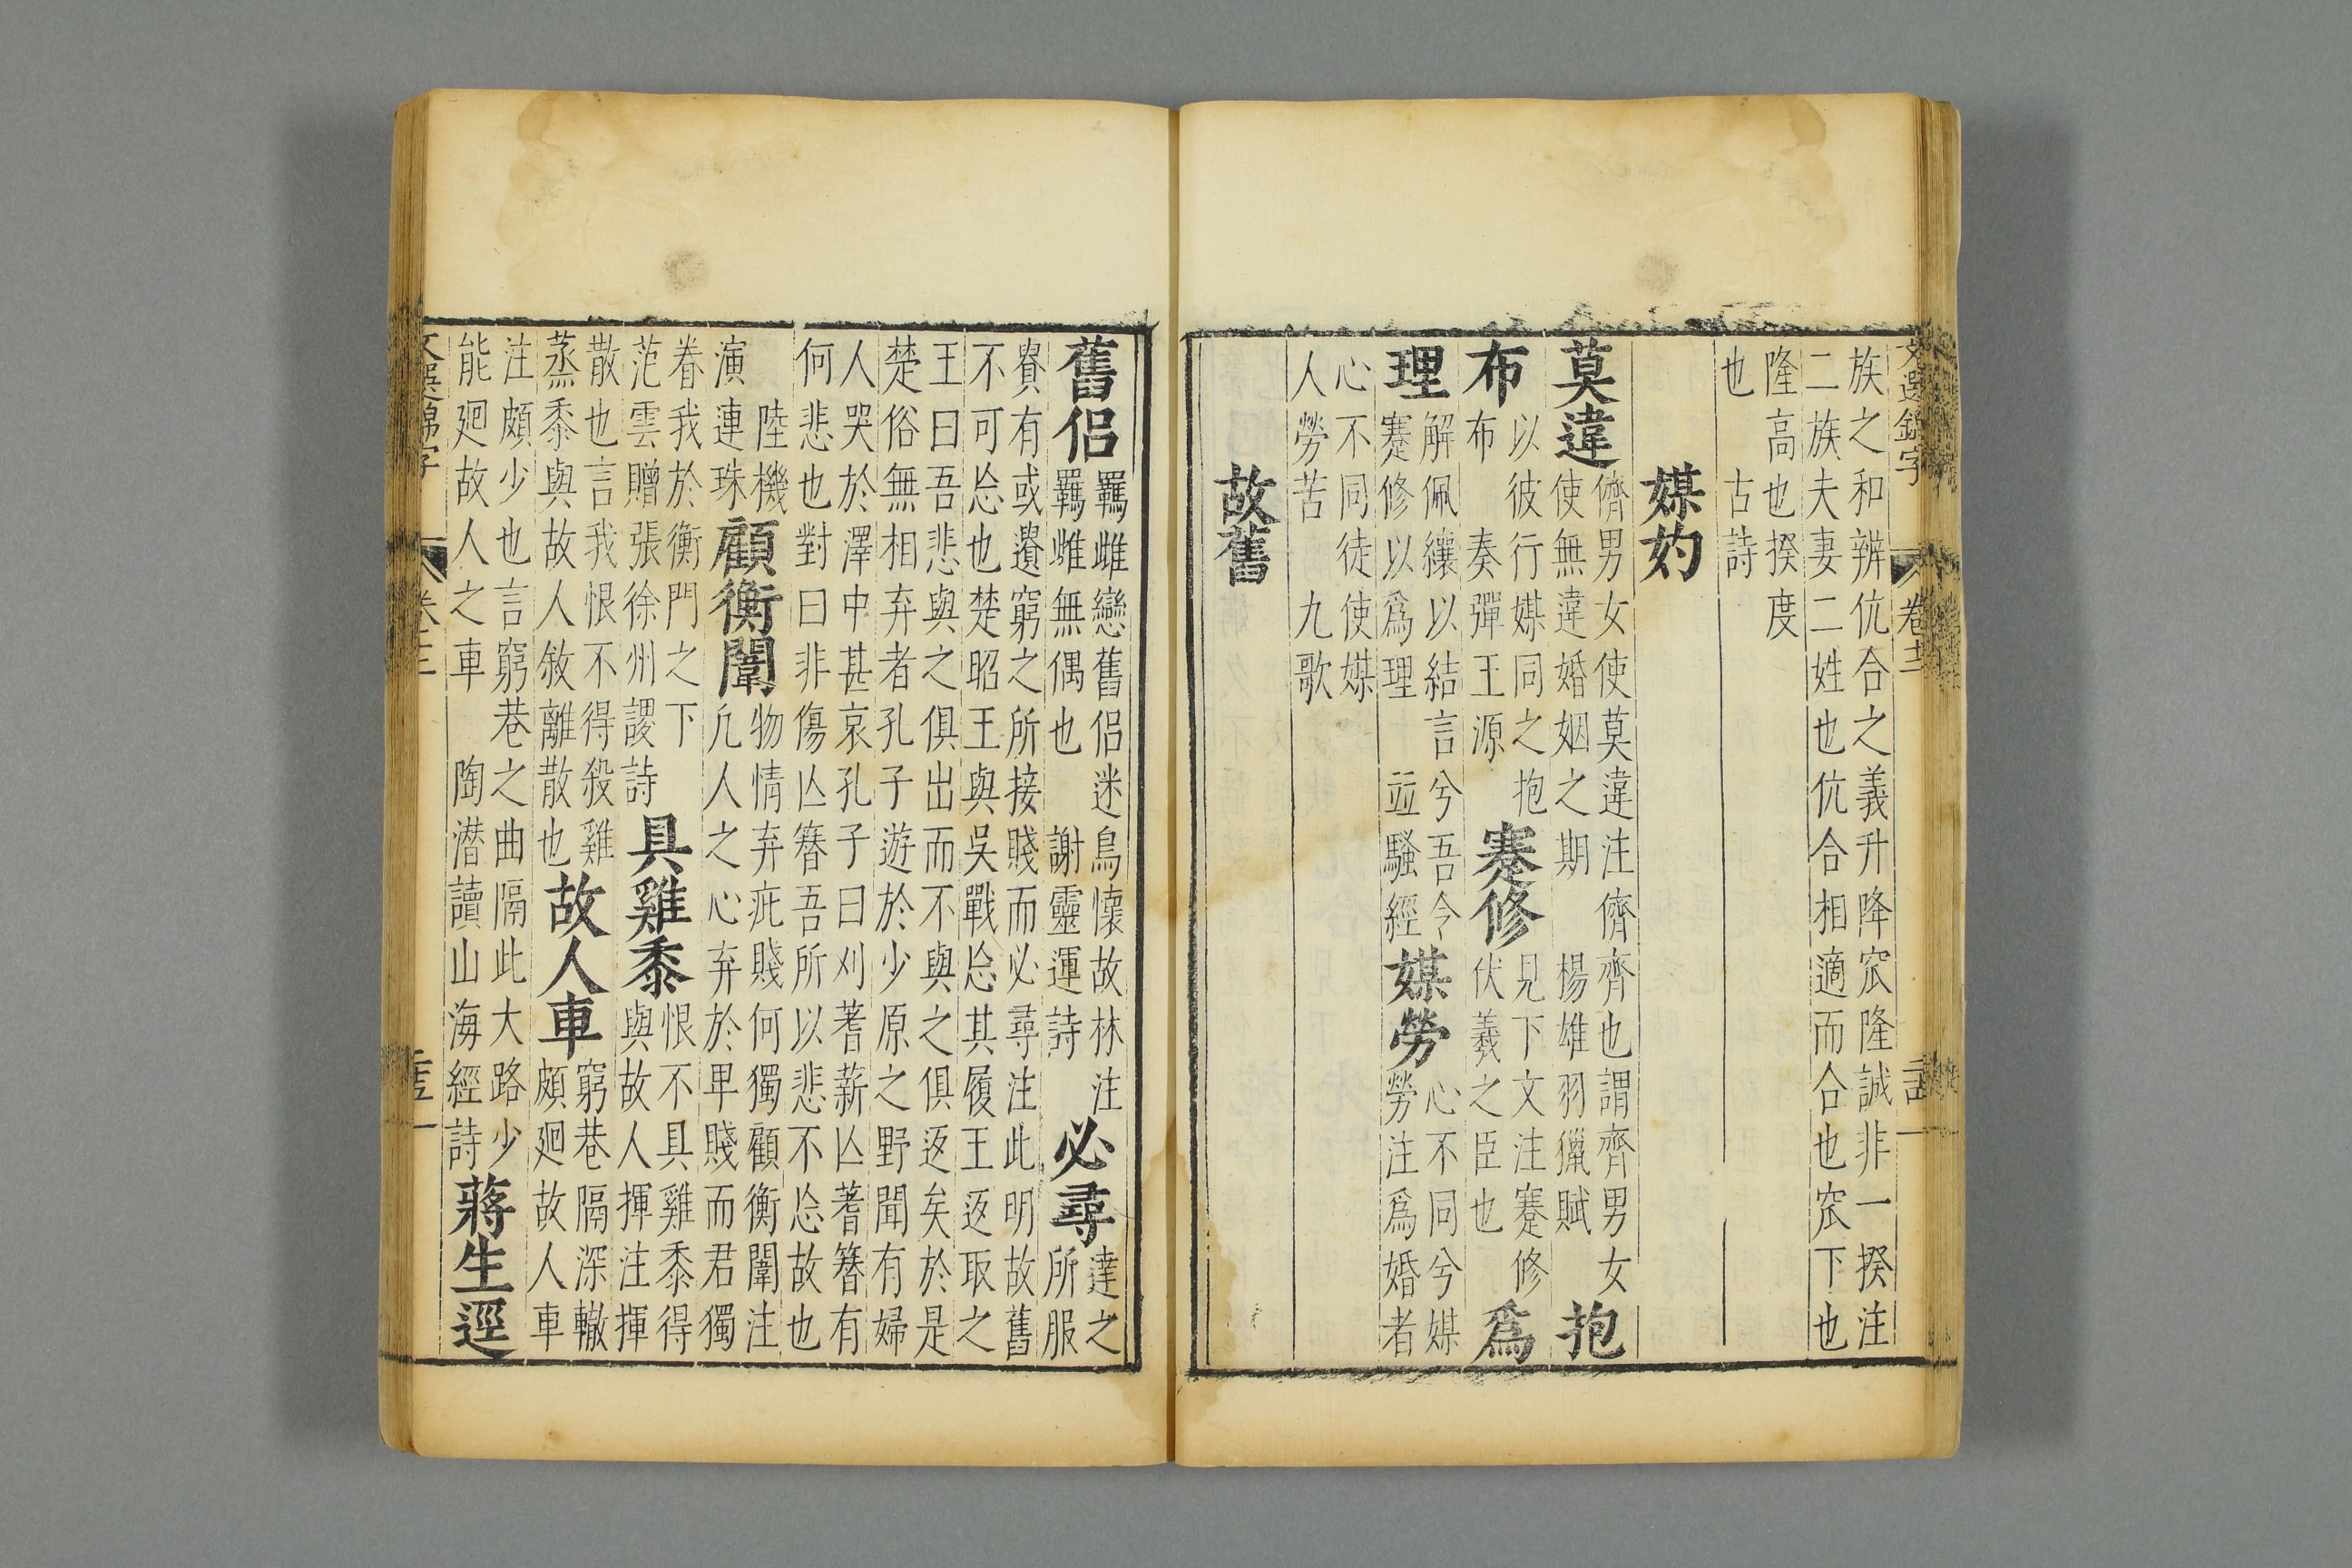 文選錦字
卷十二
族之和辨伉合之義升降窊隆誠非一揆注
二族夫妻二姓也伉合相適而合也窊下也
隆高也揆度
也　古詩
媒妁
莫違
儕男女使莫違注儕齊也謂齊男女
使無違婚姻之期　楊雄羽獵賦
抱
布
以彼行媒同之抱
布　奏彈王源
蹇修
見下文注蹇修
伏羲之臣也
爲
理
解佩纕以結言兮吾令
蹇修以爲理　並騷經
媒勞
心不同兮媒
勞注爲婚者
心不同徒使媒
人勞苦　九歌
故舊
舊侶
羈雌戀舊侶迷鳥懷故林注
羈雌無偶也　謝靈運詩
必尋
達之
所服
貴有或遺窮之所接賤而必尋注此明故舊
不可忘也楚昭王與吳戰忘其履王返取之
王曰吾悲與之俱出而不與之俱返矣於是
楚俗無相弃者孔子遊於少原之野聞有婦
人哭於澤中甚哀孔子曰刈蓍薪亾蓍簪有
何悲也對曰非傷亾簪吾所以悲不忘故也
陸機
演連珠
顧衡闈
物情弃疵賤何獨顧衡闈注
凢人之心弃於卑賤而君獨
眷我於衡門之下
范雲贈張徐州謖詩
具雞黍
恨不具雞黍得
與故人揮注揮
散也言我恨不得殺雞
蒸黍與故人敘離散也
故人車
窮巷隔深轍
頗廻故人車
注頗少也言窮巷之曲隔此大路少
能廻故人之車　陶潛讀山海經詩
蔣生逕